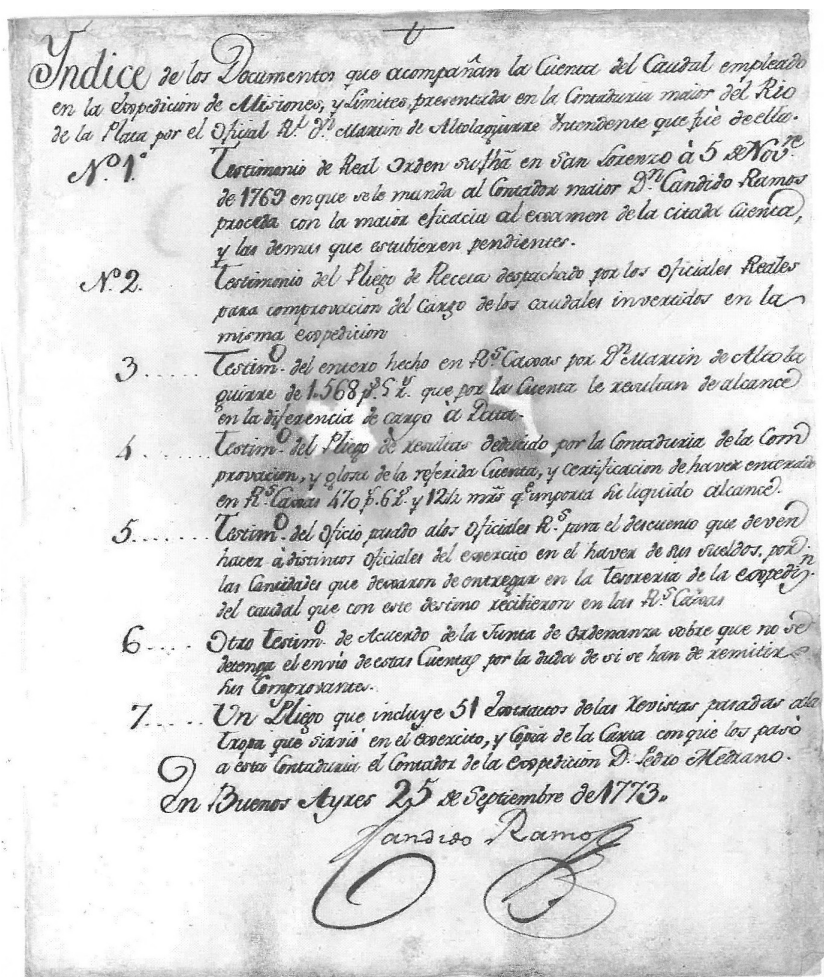 Yndice de los Documentos que acompañan la Cuenta del Caudal empleado
en la Expedicion de Misiones, y Limites, presentada en la Contaduria maior del Rio
de la Plata por el Oficial Rl. Dn. Martin de Altolaguirre Yntendente que fué de ella.
No. 1o. Testimonio de Real Orden su fha en San Lorenzo à 5 de Novre
de 1769 en que se le manda al Contador maior Dn. Candido Ramos
proceda con la maior eficacia al examen de la citada Cuenta,
y las demas que estubieren pendientes.
No. 2. Testimonio del Pliego de Receta despachado por los oficiales Reales
para comprovacion del Cargo de los caudales invertidos en la
misma expedicion
3...... Testimo. del entero hecho en Rs. Caxas por Dn. Martin de Altola
guirre de 1.568 ps. 5 rs. que por la Cuenta le resultan de alcance
en la diferencia de cargo à Data.
4...... Testimo. del Pliego de resultas deducido por la Contaduria de la Com
provacion, y glosa de la referida Cuenta, y certificacion de haver enterado
en Rs. Caxas 470 ps. 6 rs. y 12½ mrs qe. importa su liquido alcance.
5....... Testimo. del Oficio pasado alos Oficiales Rs. para el descuento que deven
hacer à distintos oficiales del exercito en el haver de sus sueldos, por
las Cantidades que dexaron de entregar en la Tesoreria de la expedion.
del caudal que con este destino recibieron en las Rs. Caxas
6.... Otro Testimo. de Acuerdo de la Junta de Ordenanza sobre que no se
detenga el envio de estas Cuentas por la duda de si se han de remitir
sus Comprovantes.
7..... Un Pliego que incluye 51 Extractos de las Revistas pasadas ala
tropa que sirvió en el exercito, y Copia de la Carta con que los pasò
a esta Contaduria el Contador de la expedicion D. Pedro Medrano.
En Buenos Ayres 25 de Septiembre de 1773.
Candido Ramos